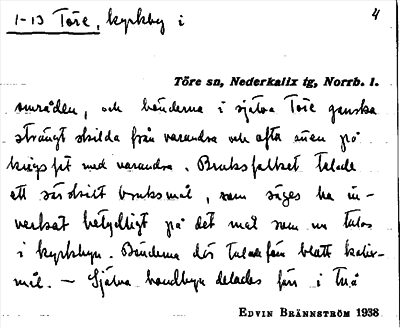 1-13 Töre, kyrkby i
4
Töre sn, Nederkalix tg, Norrb. l.
områden, och bönderna i själva Töre ganska
strängt skilda från varandra och ofta även på
krigsfot med varandra. Bruksfolket talade
ett särskilt bruksmål, som säges ha in-
verkat betydligt på det mål som nu talas
i kyrkbyn. Bönderna där talade förr blott kalix-
mål. — Själva handbyn delades förr i två
EDVIN BRÄNNSTRÖM 1938